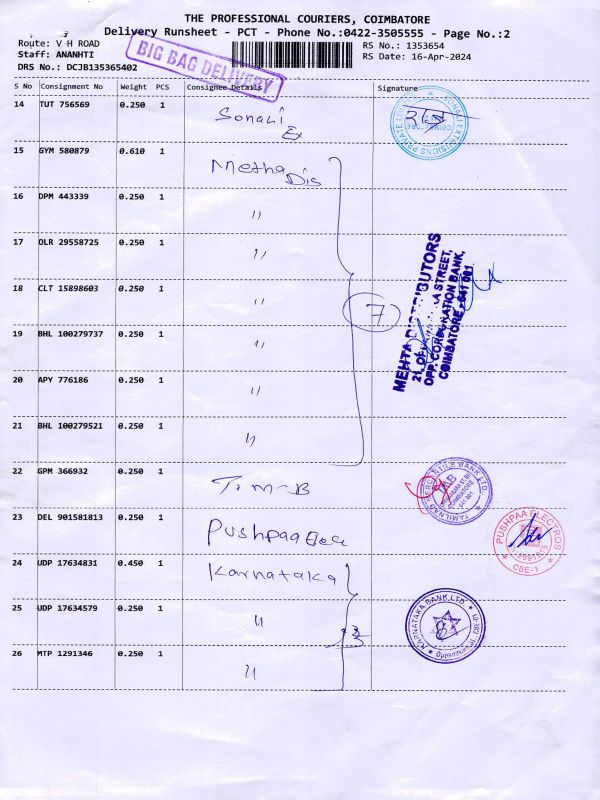 THE PROFESSIONAL COURIERS, COIMBATORE
Delivery Runsheet - PCT - Phone No.:0422-3505555 - Page No.:2
Route: V H ROAD
Staff: ANANHTI
DRS No.: DCJB135365402
BIG BAG DELIVERY
RS No.: 1353654
RS Date: 16-Apr-2024
S No Consignment No Weight PCS Consignee Details Signature
14 TUT 756569 0.250 1 Sonali Ex
15 GYM 580879 0.610 1 Metha Dis
16 DPM 443339 0.250 1 "
17 DLR 29558725 0.250 1 "
18 CLT 15898603 0.250 1 "
7
19 BHL 100279737 0.250 1 "
20 APY 776186 0.250 1 "
21 BHL 100279521 0.250 1 "
MEHTA DISTRIBUTORS
STREET,
OPP. CORPORATION BANK,
COIMBATORE - 641 001.
22 GPM 366932 0.250 1 T.M-B
TAMILNAD MERCANTILE BANK LTD.
COIMBATORE
641 001
23 DEL 901581813 0.250 1 Pushpaa Elec
PUSHPAA ELECTROS
CBE-1
24 UDP 17634831 0.450 1 Karnataka
25 UDP 17634579 0.250 1 "
3
KARNATAKA BANK LTD.
26 MTP 1291346 0.250 1 "